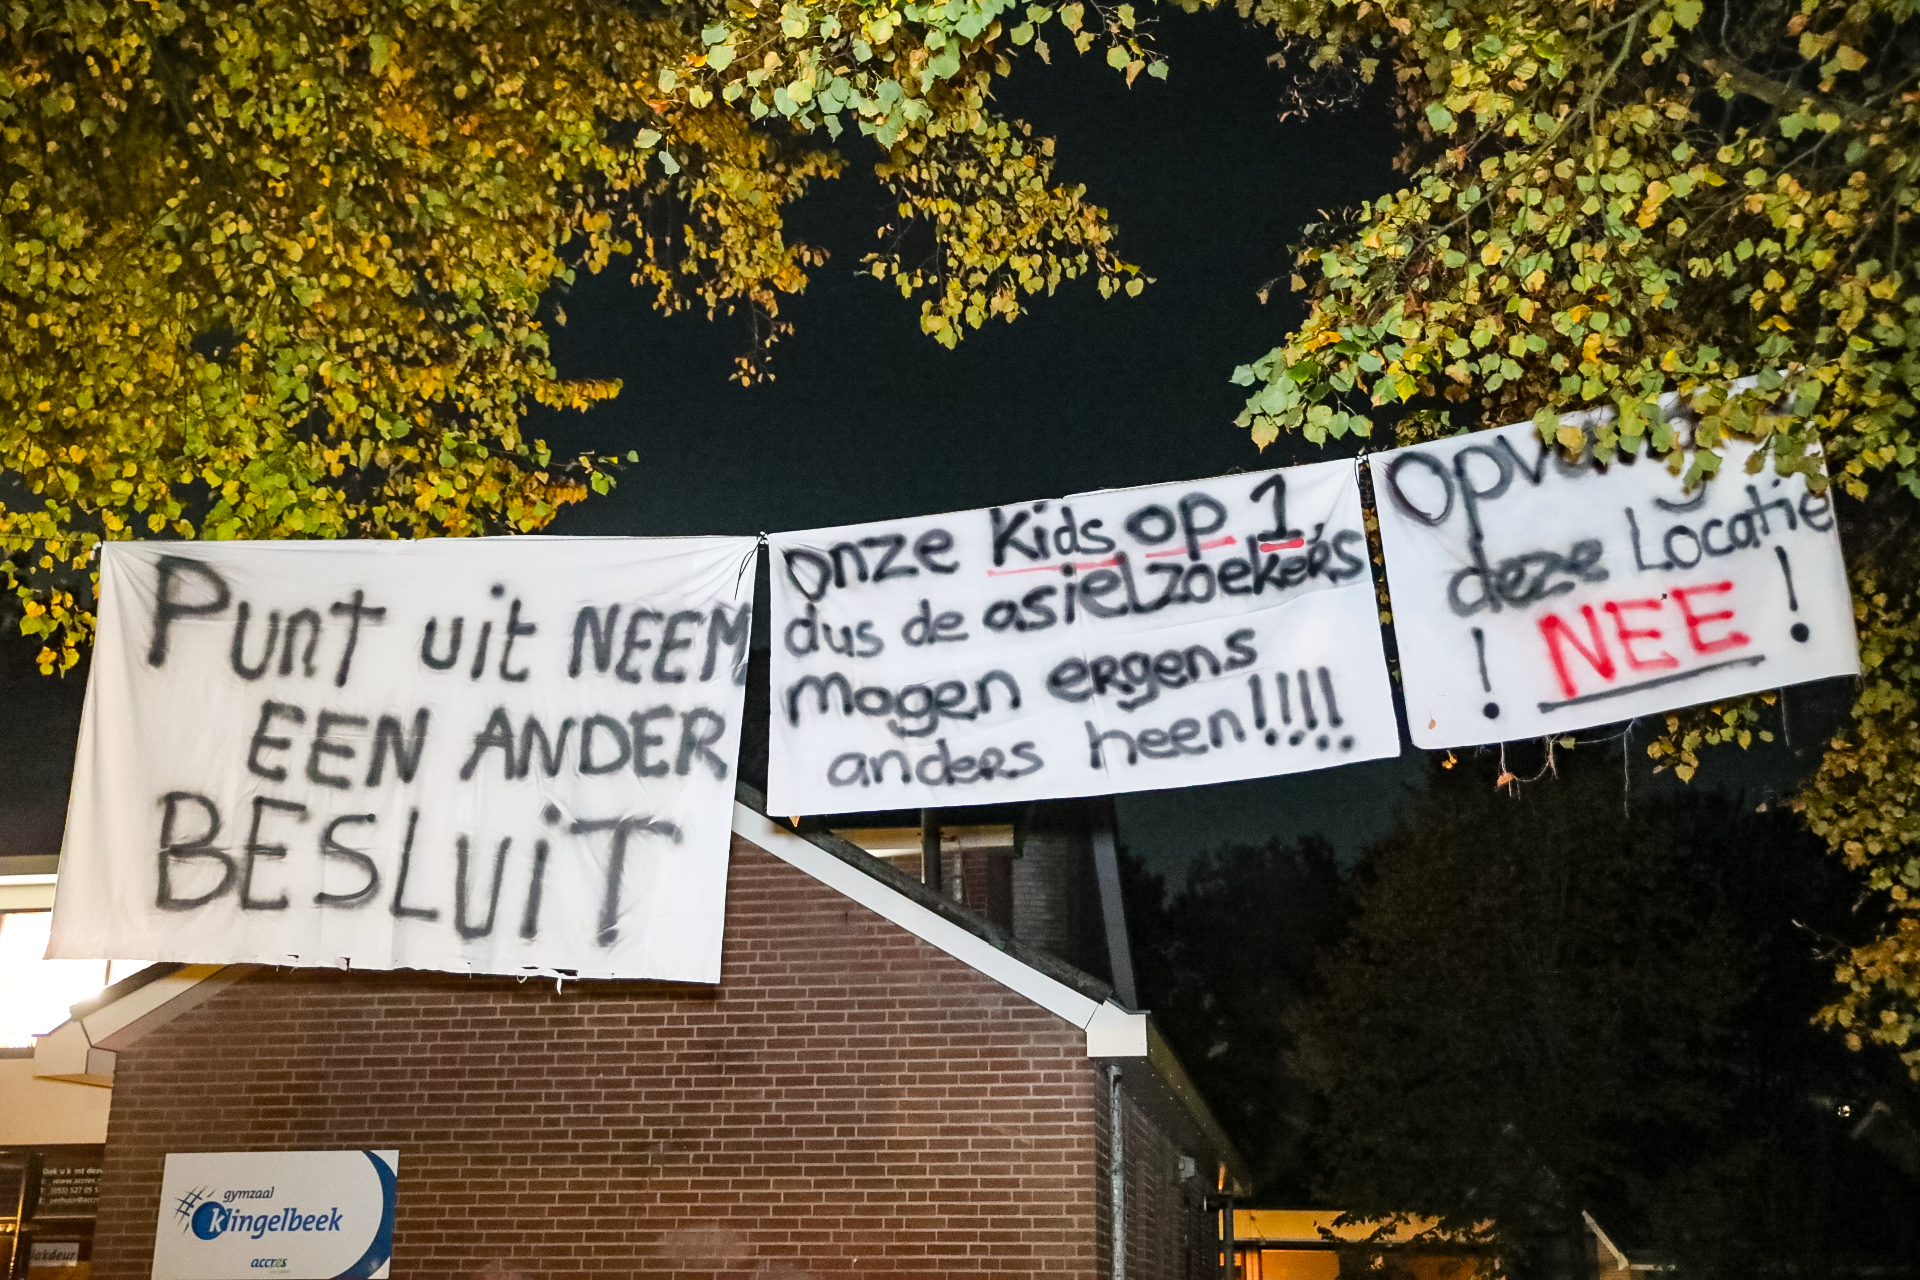 Punt uit NEEM
EEN ANDER
BESLUiT
onze kids op 1,
dus de asielzoekers
mogen ergens
anders heen!!!!
deze Locatie
! NEE !
gymzaal
klingelbeek
accres